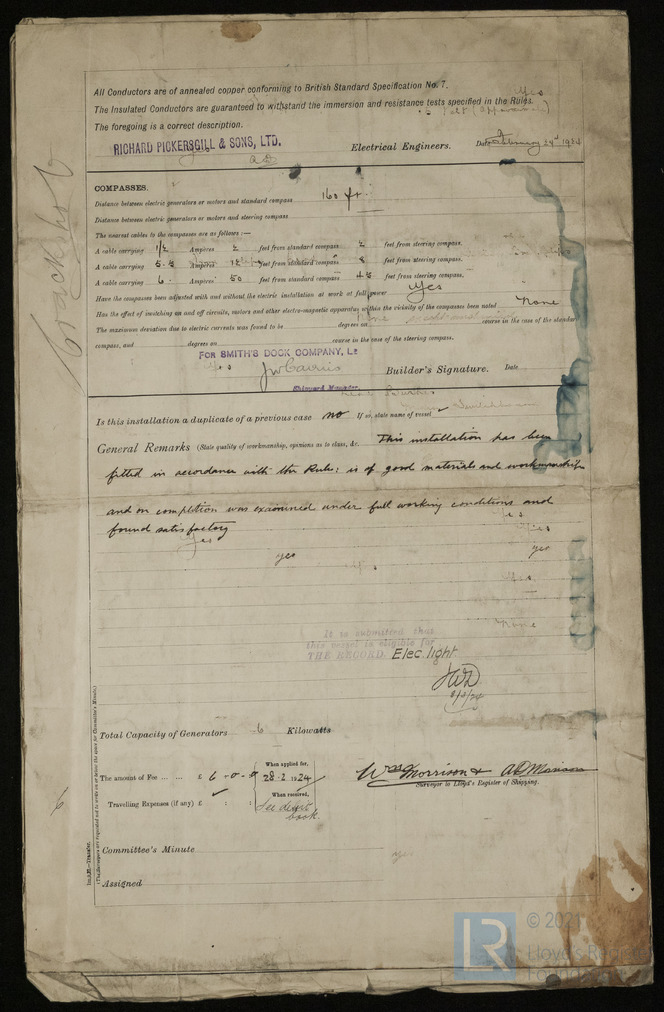 All Conductors are of annealed copper conforming to British Standard Specification No. 7.
The Insulated Conductors are guaranteed to withstand the immersion and resistance tests specified in the Rules.
The foregoing is a correct description.
RICHARD PICKERSGILL & SONS, LTD. Electrical Engineers. Date February 29th 1924
Crackshot
COMPASSES.
Distance between electric generators or motors and standard compass 160 ft.
Distance between electric generators or motors and steering compass
The nearest cables to the compasses are as follows:—
A cable carrying 1/2 Ampères 2 feet from standard compass 2 feet from steering compass.
A cable carrying 5.5 Ampères 12 feet from standard compass 8 feet from steering compass.
A cable carrying 6. Ampères 50 feet from standard compass 45 feet from steering compass.
Have the compasses been adjusted with and without the electric installation at work at full power Yes
Has the effect of switching on and off circuits, motors and other electro-magnetic apparatus within the vicinity of the compasses been noted None
The maximum deviation due to electric currents was found to be degrees on course in the case of the standard
compass, and degrees on course in the case of the steering compass.
FOR SMITH'S DOCK COMPANY, Ld
Builder's Signature. Date
Shipyard Manager.
Is this installation a duplicate of a previous case no If so, state name of vessel
General Remarks (State quality of workmanship, opinions as to class, &c. This installation has been
fitted in accordance with the Rules: is of good materials and workmanship
and on completion was examined under full working conditions and
found satisfactory
It is submitted that
this vessel is eligible for
THE RECORD. Elec. light.
JWD
Total Capacity of Generators 6 Kilowatts
The amount of Fee ... ... £ 6-0-0 When applied for, 28.2.1924
Travelling Expenses (if any) £ : : When received,
See
book
Wm Morrison & A D Morrison
Surveyor to Lloyd's Register of Shipping.
Committee's Minute
Assigned
Im.5.22.—Transfer.
(The Surveyors are requested not to write on or below the space for Committee's Minute.)
LR © 2021
Lloyd's Register
Foundation